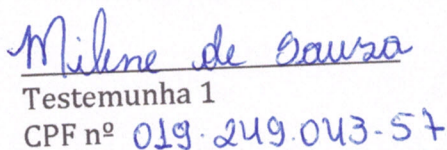 Milene de Souza
Testemunha 1
CPF nº 019.249.043-57